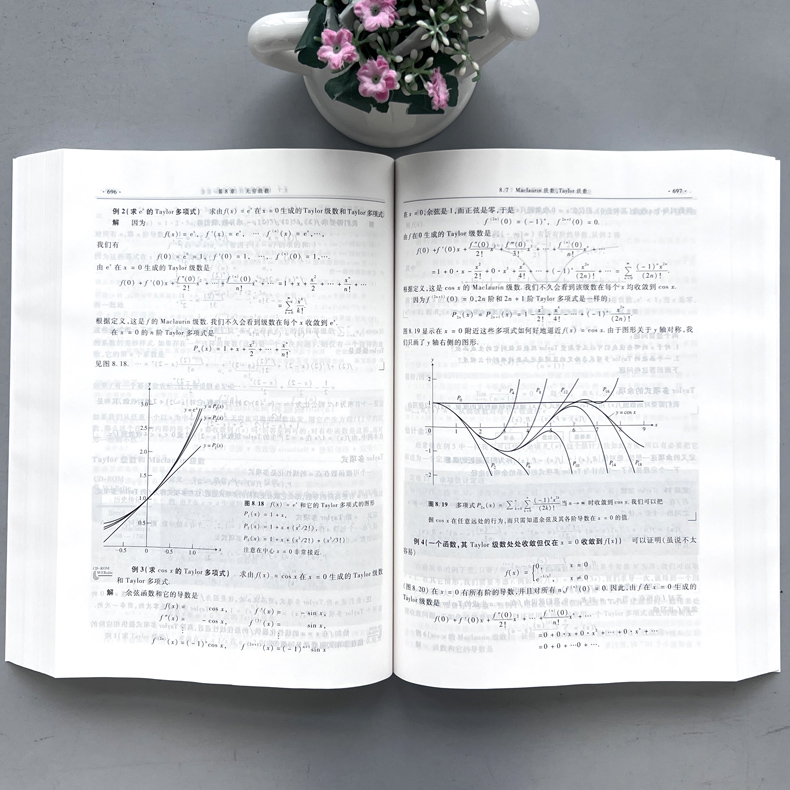 · 696 ·
第 8 章 无穷级数
例 2 (求 eˣ 的 Taylor 多项式) 求由 f(x) = eˣ 在 x = 0 生成的 Taylor 级数和 Taylor 多项式.
解 因为
f(x) = eˣ, f′(x) = eˣ, ⋯ f⁽ⁿ⁾(x) = eˣ, ⋯,
我们有
f(0) = e⁰ = 1, f′(0) = 1, ⋯, f⁽ⁿ⁾(0) = 1, ⋯.
由 eˣ 在 x = 0 生成的 Taylor 级数是
f(0) + f′(0)x + f″(0)/2! x² + ⋯ + f⁽ⁿ⁾(0)/n! xⁿ + ⋯ = 1 + x + x²/2 + ⋯ + xⁿ/n! + ⋯
根据定义, 这是 f 的 Maclaurin 级数. 我们不久会看到级数在每个 x 收敛到 eˣ.
在 x = 0 的 n 阶 Taylor 多项式是
Pₙ(x) = 1 + x + x²/2 + ⋯ + xⁿ/n!
见图 8.18.
图 8.18 f(x) = eˣ 和它的 Taylor 多项式的图形
P₁(x) = 1 + x,
P₂(x) = 1 + x + (x²/2!),
P₃(x) = 1 + x + (x²/2!) + (x³/3!)
注意在中心 x = 0 非常接近.
CD-ROM
例 3 (求 cos x 的 Taylor 多项式) 求由 f(x) = cos x 在 x = 0 生成的 Taylor 级数
和 Taylor 多项式.
解 余弦函数和它的导数是
f(x) = cos x, f′(x) = − sin x,
f″(x) = − cos x, f⁽³⁾(x) = sin x,
f⁽²ⁿ⁾(x) = (−1)ⁿ cos x, f⁽²ⁿ⁺¹⁾(x) = (−1)ⁿ⁺¹ sin x
8.7 Maclaurin 级数, Taylor 级数
· 697 ·
在 x = 0, 余弦是 1, 而正弦是零, 于是
f⁽²ⁿ⁾(0) = (−1)ⁿ, f⁽²ⁿ⁺¹⁾(0) = 0.
由 f 在 0 生成的 Taylor 级数是
f(0) + f′(0)x + f″(0)/2! x² + f‴(0)/3! x³ + ⋯ + f⁽ⁿ⁾(0)/n! xⁿ + ⋯
= 1 + 0 · x − x²/2! + 0 · x³ + x⁴/4! + ⋯ + (−1)ⁿ x²ⁿ/(2n)! + ⋯
根据定义, 这是 cos x 的 Maclaurin 级数. 我们不久会看到该级数在每个 x 均收敛到 cos x.
因为 f⁽²ⁿ⁺¹⁾(0) = 0, 2n 阶和 2n + 1 阶 Taylor 多项式是一样的:
P₂ₙ(x) = P₂ₙ₊₁(x) = 1 − x²/2! + x⁴/4! − ⋯ + (−1)ⁿ x²ⁿ/(2n)!
图 8.19 显示在 x = 0 附近这些多项式如何好地逼近 f(x) = cos x. 由于图形关于 y 轴对称, 我
们只画了 y 轴右侧的图形.
y = cos x
例 4 (一个函数, 其 Taylor 级数处处收敛但仅在 x = 0 收敛到 f(x)) 可以证明(虽说不太
容易)
(图 8.20) 在 x = 0 有所有阶的导数, 并且对所有 n, f⁽ⁿ⁾(0) = 0. 因此, 由 f 在 x = 0 生成的
Taylor 级数是
f(0) + f′(0)x + f″(0)/2! x² + ⋯ + f⁽ⁿ⁾(0)/n! xⁿ + ⋯
= 0 + 0 · x + 0 · x² + ⋯ + 0 · xⁿ + ⋯
= 0 + 0 + ⋯ 0 + ⋯.